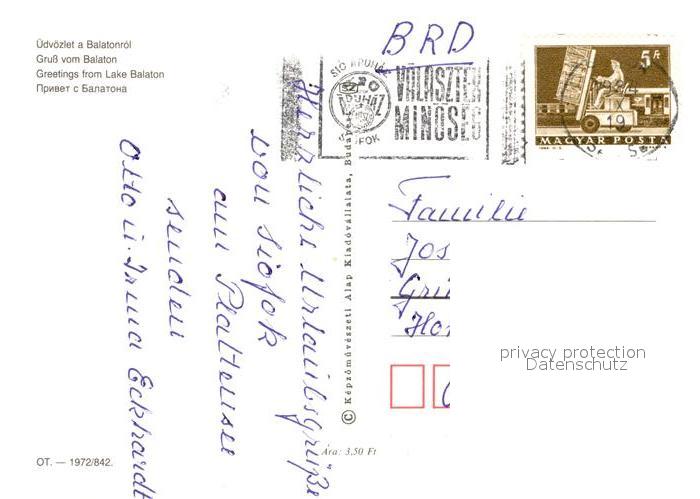 Üdvözlet a Balatonról
Gruß vom Balaton
Greetings from Lake Balaton
Привет с Балатона
BRD
SIÓ ÁRUHÁZ
VÁLASZTÉK
MINŐSÉG
SIÓFOK
5 Ft
19
MAGYAR POSTA
Herzliche Urlaubsgrüße
von Siofok
am Plattensee
senden
Otto u. Irma Eckhardt
© Képzőművészeti Alap Kiadóvállalata, Budap
Familie
Jos
Gri
Ho
privacy protection
Datenschutz
Ára: 3,50 Ft
OT. — 1972/842.